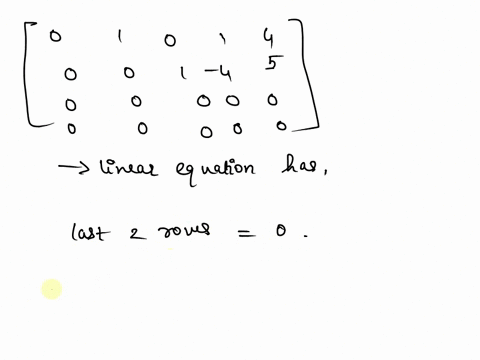 0 1 0 1 4
0 0 1 -4 5
0 0 0 0 0
0 0 0 0 0
→ linear equation has,
last 2 rows = 0.